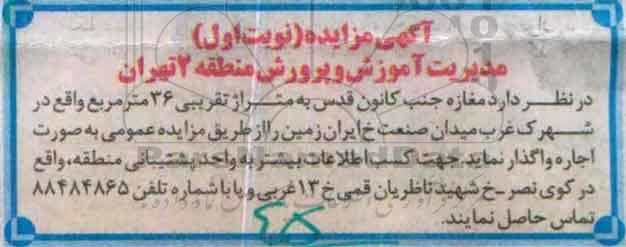 آگهی مزایده (نوبت اول)
مدیریت آموزش و پرورش منطقه ۲ تهران
در نظر دارد مغازه جنب کانون قدس به متراژ تقریبی ۳۶ مترمربع واقع در
شهرک غرب میدان صنعت خ ایران زمین را از طریق مزایده عمومی به صورت
اجاره واگذار نماید. جهت کسب اطلاعات بیشتر به واحد پشتیبانی منطقه، واقع
در کوی نصر ـ خ شهید ناظریان قمی خ ۱۳ غربی و یا با شماره تلفن ۸۸۴۸۴۸۶۵
تماس حاصل نمایند.